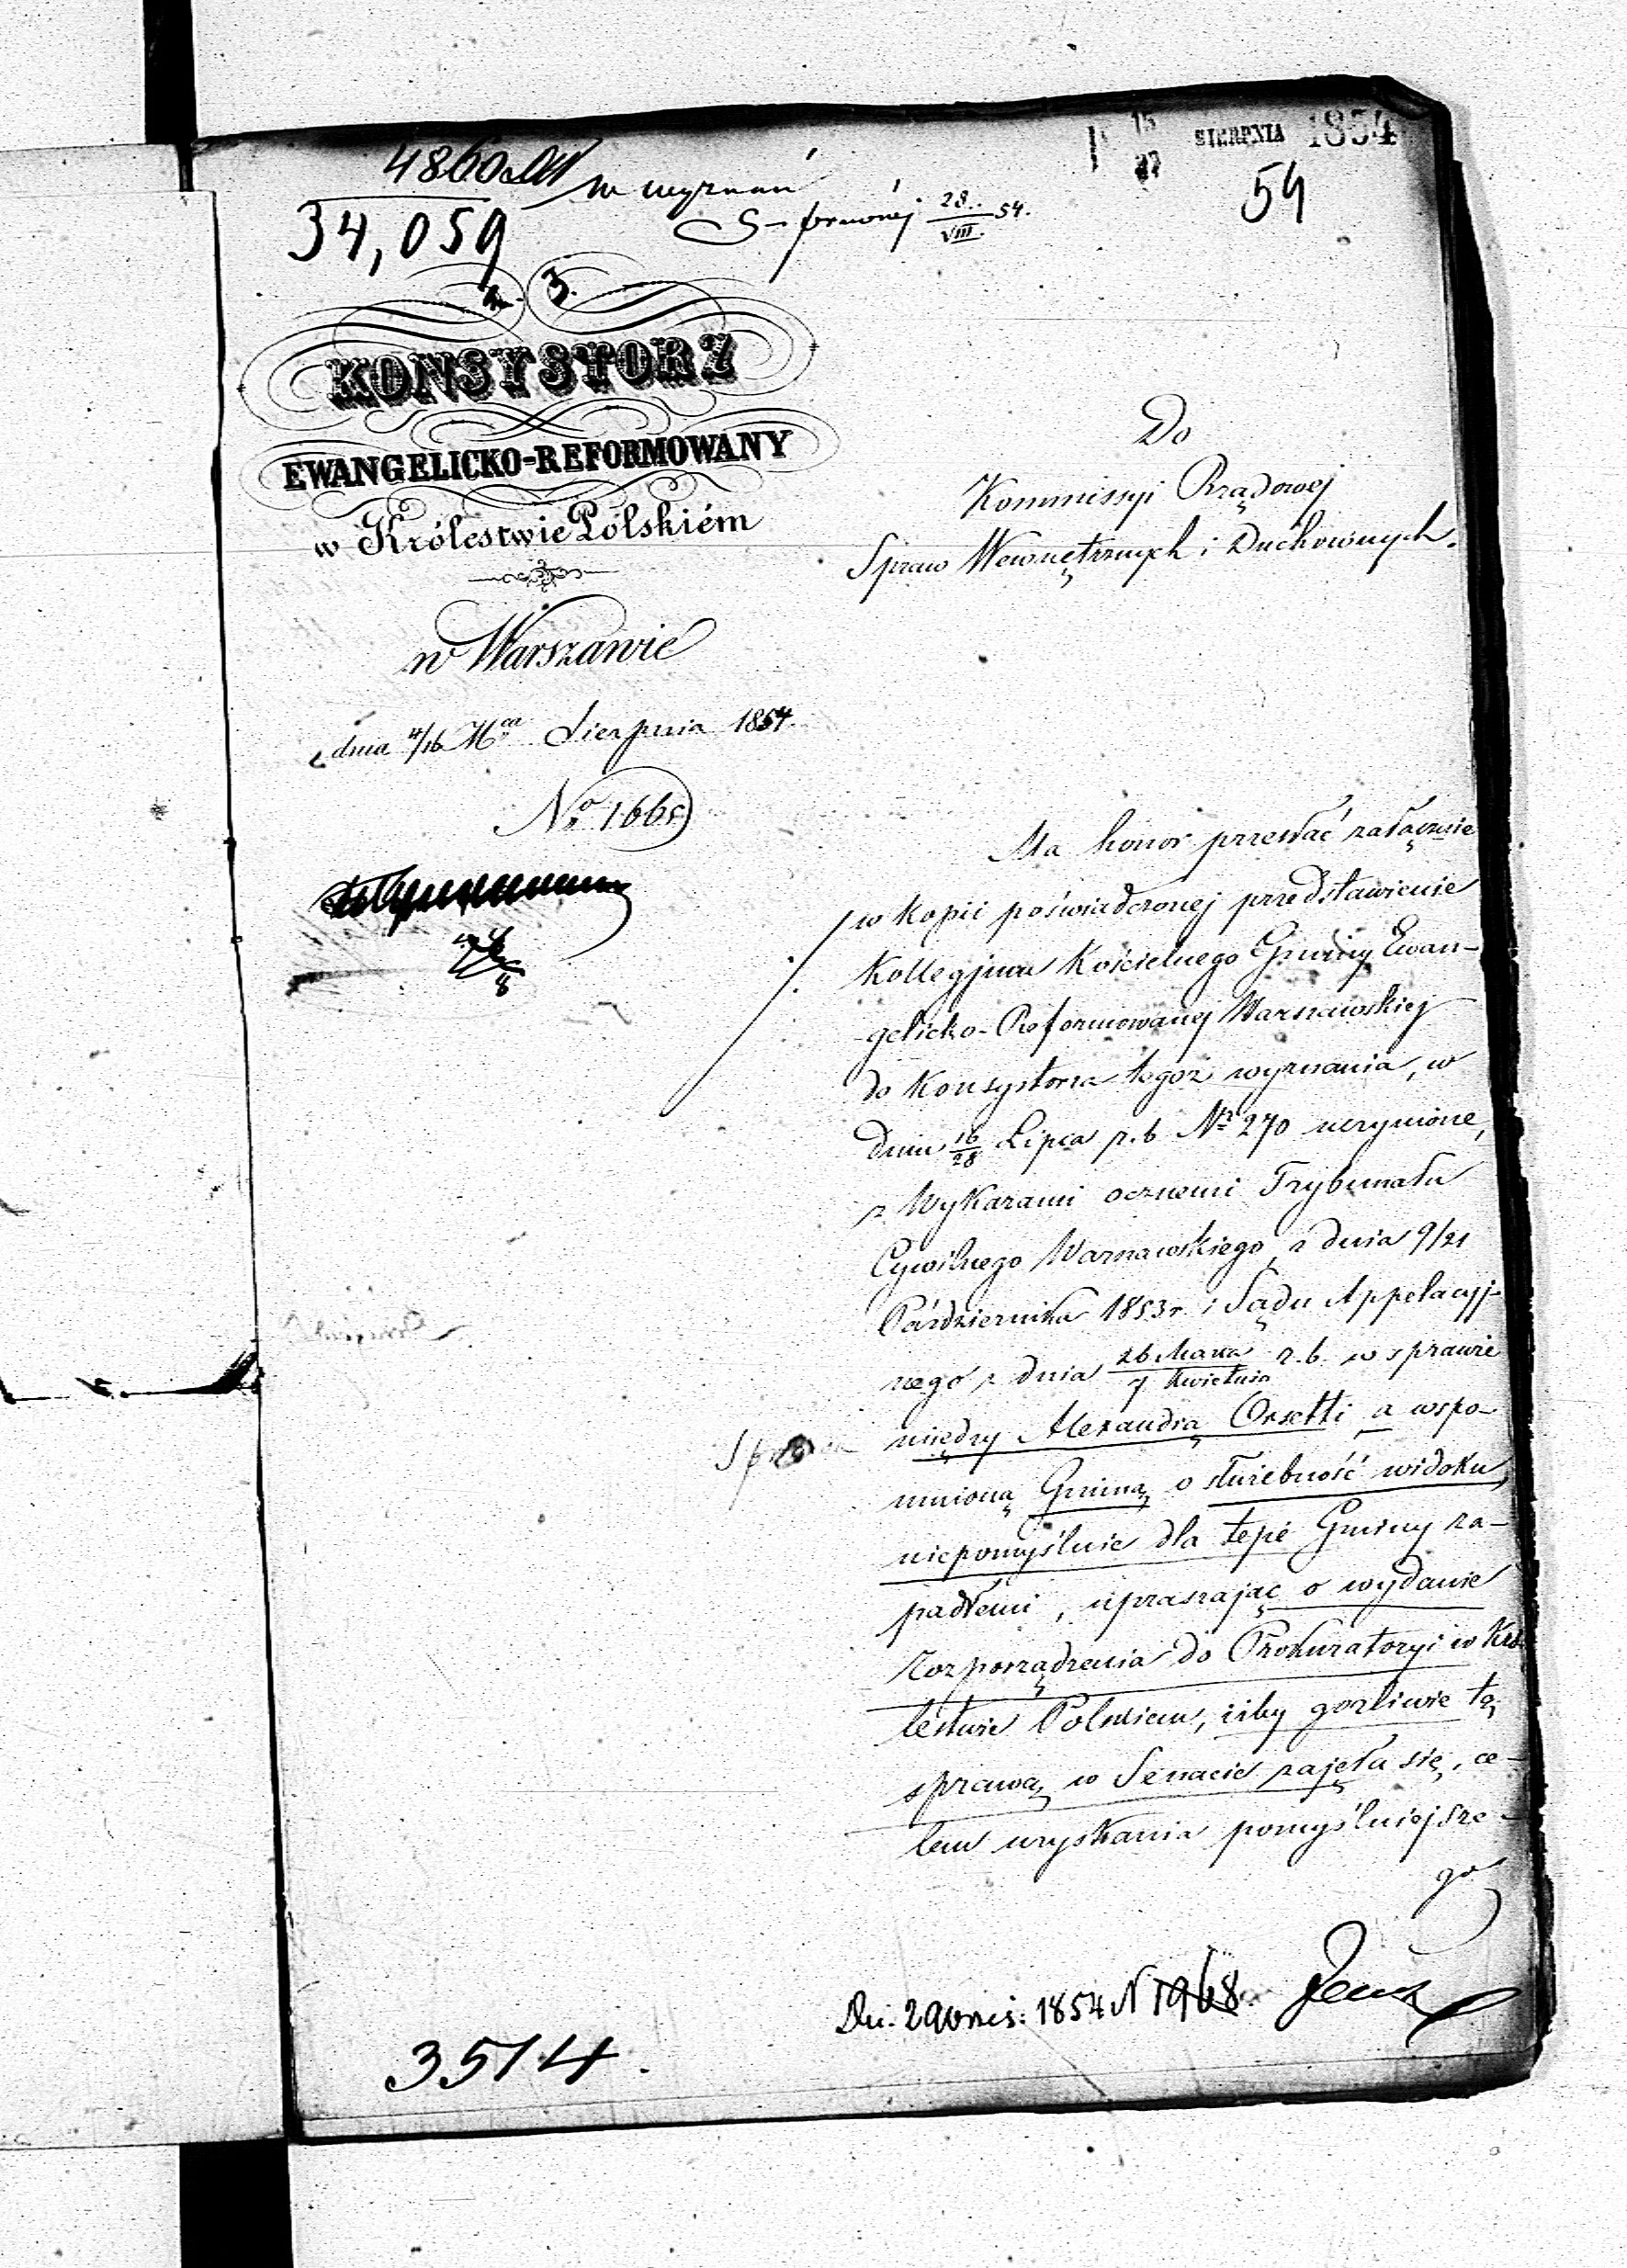 15
27
SIERPNIA 1854
54
34,059
w wyznań
28
VIII 54.
3.
KONSYSTORZ
EWANGELICKO-REFORMOWANY
w Królestwie Polskiém
w Warszawie
dnia 4/16 Mca Sierpnia 1854.
No 1665
Do
Kommissyi Rządowej
Spraw Wewnętrznych i Duchownych.
Ma honor przesłać załącznie
w kopii poświadczonej przedstawienie
Kollegjum Kościelnego Gminy Ewan-
gelicko-Reformowanej Warszawskiej
do Konsystorza tegoż wyznania, w
dniu 16/28 Lipca r.b. Nr 270 uczynione,
z Wykazami ocznemi Trybunału
Cywilnego Warszawskiego z dnia 9/21
Października 1853 r. i Sądu Appelacyj-
nego z dnia 26 Marca / 7 Kwietnia r.b. w sprawie
między Alexandrą Orsetti a wspo-
mnioną Gminą o służebność widoku,
niepomyślnie dla tejże Gminy za-
padłemi, upraszając o wydanie
rozporządzenia do Prokuratoryi w Kró-
lestwie Polskiem, iżby gorliwie tą
sprawą w Senacie zajęła się, ce-
lem uzyskania pomyślniejsze-
go
1854 N 1968.
3514.